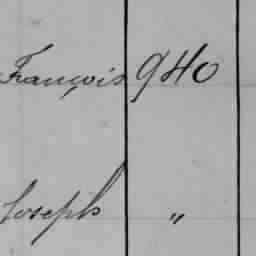 François 940
Joseph "